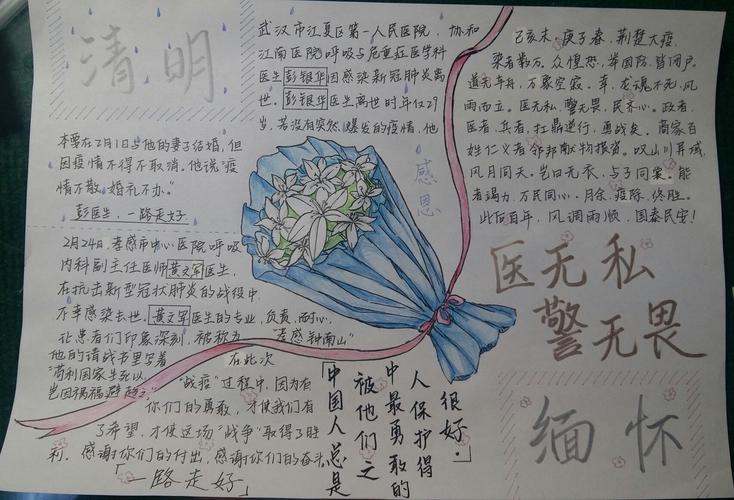 清明
武汉市江夏区第一人民医院，协和
江南医院呼吸与危重症医学科
医生彭银华因感染新冠肺炎离
世。彭银华医生离世时年仅29
岁，若没有突然爆发的疫情，他
本要在2月1日与他的妻子结婚，但
因疫情不得不取消。他说“疫
情不散，婚礼不办。”
彭医生，一路走好
2月24日，孝感市中心医院呼吸
内科副主任医师黄文军医生，
在抗击新型冠状肺炎的战役中
不幸感染去世。黄文军医生的专业，负责，耐心，
让患者们印象深刻，被称为“孝感钟南山”
他的请战书里写着
“苟利国家生死以
岂因祸福避趋之。”
在此次
“战疫”过程中，因为有
你们的勇敢，才使我们有
了希望，才使这场“战争”取得了胜
利。感谢你们的付出，感谢你们的奋斗
「一路走好」
感恩
己亥末，庚子春，荆楚大疫，
染者数万，众惶恐，举国防，皆闭户。
道无车舟，万巷空寂。幸，龙魂不死，风
雨而立。医无私，警无畏，民齐心。政者，
医者，兵者，扛鼎逆行，勇战矣。商家百
姓仁义者，邻邦献物捐资。叹山川异域，
风月同天，岂曰无衣，与子同裳。能
者竭力，万民同心。月余，疫除，终胜。
此后百年，风调雨顺，国泰民安！
医无私
警无畏
「中国人总是
被他们之
中最勇敢的
人保护得
很好」
缅怀